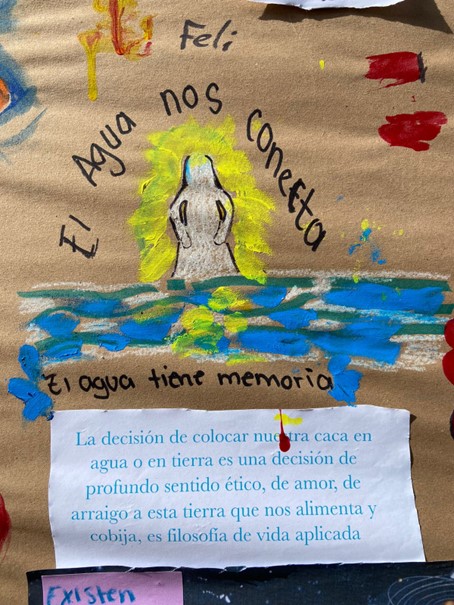 Feli
El Agua nos conecta
El agua tiene memoria
La decisión de colocar nuestra caca en
agua o en tierra es una decisión de
profundo sentido ético, de amor, de
arraigo a esta tierra que nos alimenta y
cobija, es filosofía de vida aplicada
Existen